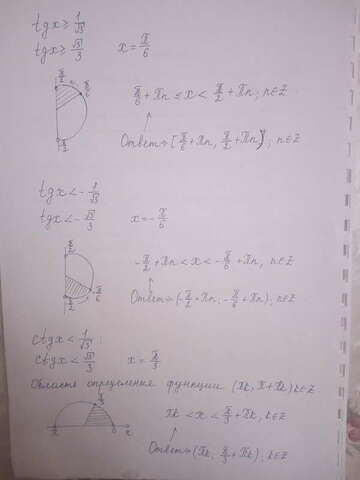 tg x ≥ 1/√3
tg x ≥ √3/3 x = π/6
π/2
π/6
π/6 + πn ≤ x < π/2 + πn; n∈Z
-π/2
Ответ: [π/6 + πn, π/2 + πn); n∈Z
tg x < - 1/√3
tg x < - √3/3 x = - π/6
π/2
- π/2 + πn < x < - π/6 + πn, n∈Z
-π/6
-π/2
Ответ: (- π/2 + πn; - π/6 + πn); n∈Z
ctg x < 1/√3;
ctg x < √3/3 x = π/3
Область определения функции (πk, π + πk) k∈Z.
π/3
πk < x < π/3 + πk, k∈Z
π 0 x
Ответ: (πk; π/3 + πk); k∈Z